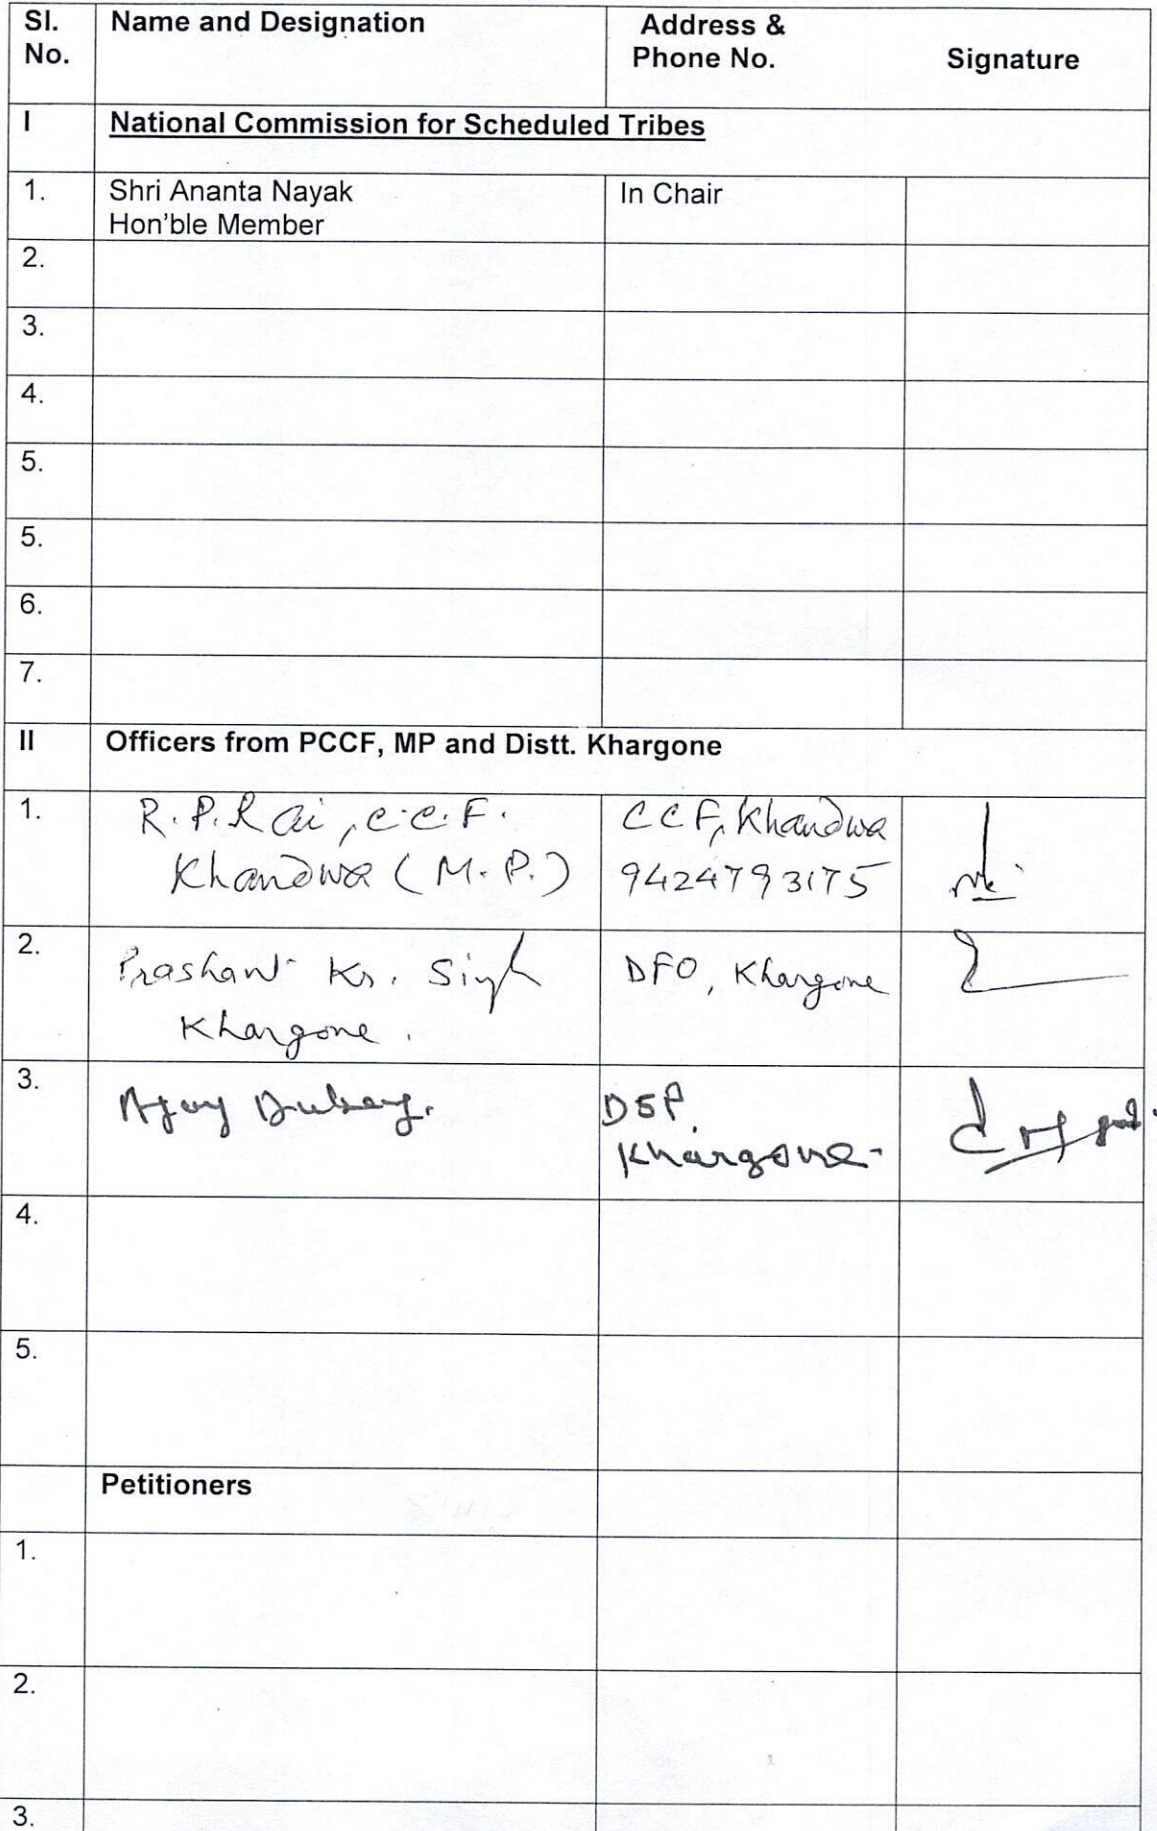 Sl. No.
Name and Designation
Address & Phone No.
Signature
I
National Commission for Scheduled Tribes
1.
Shri Ananta Nayak
Hon'ble Member
In Chair
2.
3.
4.
5.
5.
6.
7.
II
Officers from PCCF, MP and Distt. Khargone
1.
R.P.Rai, C.C.F.
Khandwa (M.P.)
CCF, Khandwa
9424793175
2.
Prashant Kr. Singh
Khargone.
DFO, Khargone
3.
Ajay Dubey.
DSP,
Khargone-
4.
5.
Petitioners
1.
2.
3.